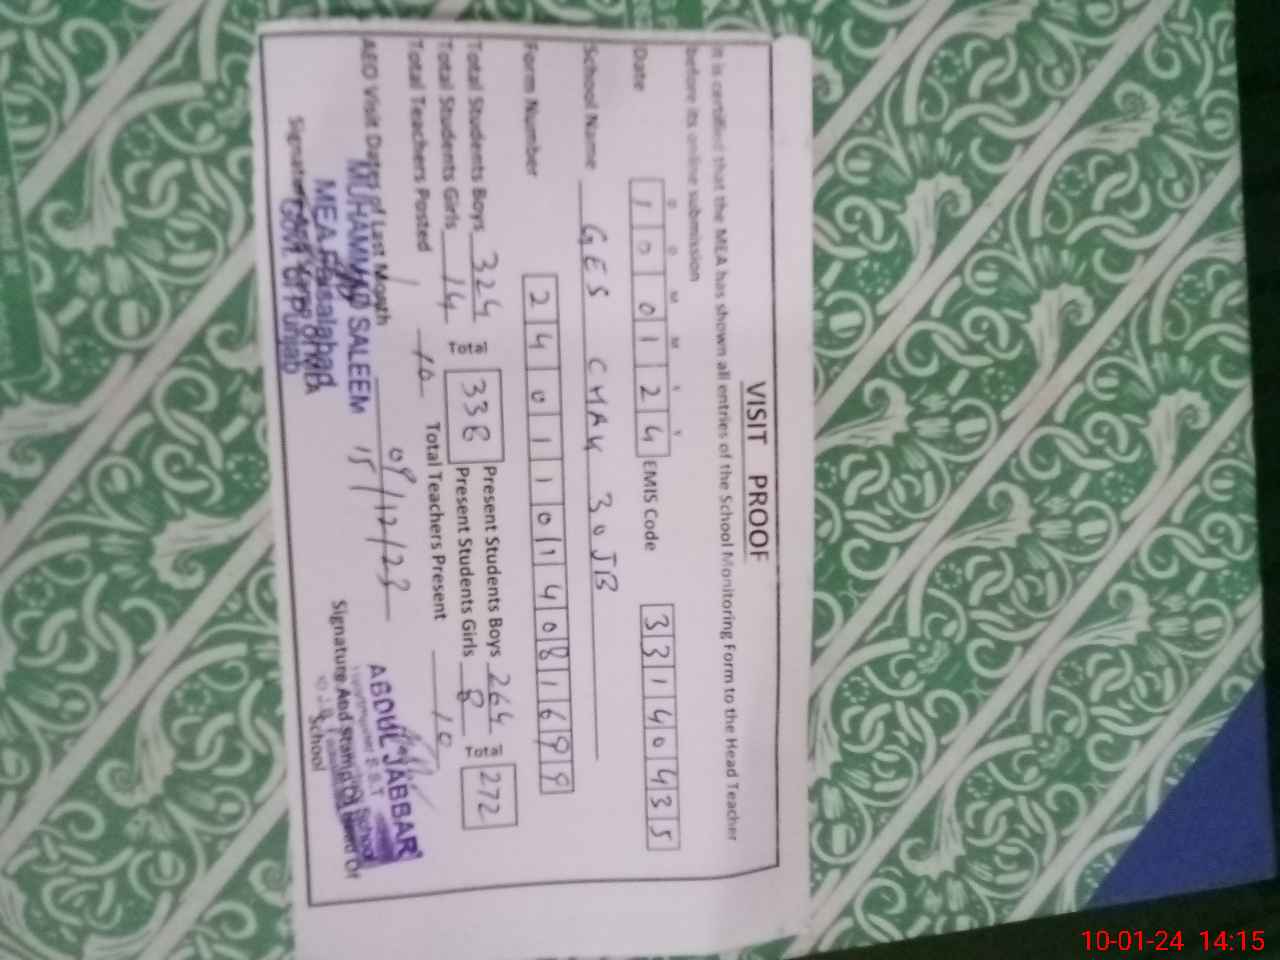 VISIT PROOF
It is certified that the MEA has shown all entries of the School Monitoring Form to the Head Teacher
before its online submission
D D M M Y Y
Date 1 0 0 1 2 4 EMIS Code 3 3 1 4 0 4 3 5
School Name GES CHAK 30 JB
Form Number 2 4 0 1 1 0 1 4 0 8 1 6 9 9
Total Students Boys 324 Present Students Boys 264
Total Students Girls 14 Total 338 Present Students Girls 8 Total 272
Total Teachers Posted 10 Total Teachers Present 10
AEO Visit Dates of Last Month 09/12/23
15
MUHAMMAD SALEEM
MEA Faisalabad
Govt. of Punjab
ABDUL JABBAR
Signature And Stamp Of Head Of
School
10-01-24 14:15